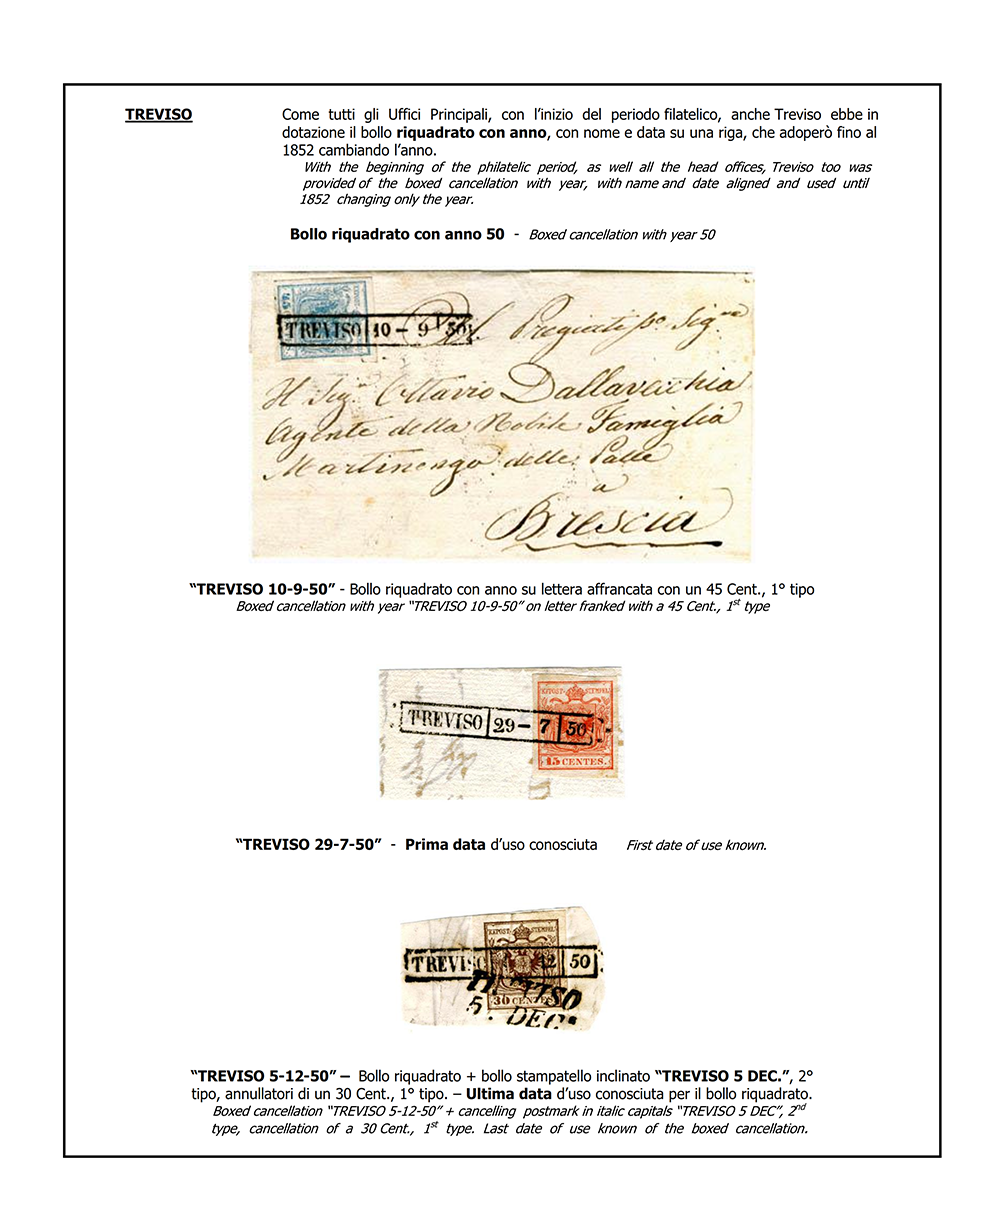 TREVISO
Come tutti gli Uffici Principali, con l'inizio del periodo filatelico, anche Treviso ebbe in
dotazione il bollo riquadrato con anno, con nome e data su una riga, che adoperò fino al
1852 cambiando l'anno.
With the beginning of the philatelic period, as well all the head offices, Treviso too was
provided of the boxed cancellation with year, with name and date aligned and used until
1852 changing only the year.
Bollo riquadrato con anno 50 - Boxed cancellation with year 50
TREVISO 10 - 9 50
Pregiatis.o Sig.re
Il Sig.r Ottavio Dallavecchia
Agente della Nobile Famiglia
Martinengo delle Palle
a
Brescia
“TREVISO 10-9-50” - Bollo riquadrato con anno su lettera affrancata con un 45 Cent., 1° tipo
Boxed cancellation with year “TREVISO 10-9-50” on letter franked with a 45 Cent., 1st type
KPOST STEMPEL
TREVISO 29 - 7 50
15 CENTES.
“TREVISO 29-7-50” - Prima data d'uso conosciuta First date of use known.
KPOST STEMPEL
TREVISO 12 50
30 CENTES.
5. DEC.
“TREVISO 5-12-50” – Bollo riquadrato + bollo stampatello inclinato “TREVISO 5 DEC.”, 2°
tipo, annullatori di un 30 Cent., 1° tipo. – Ultima data d'uso conosciuta per il bollo riquadrato.
Boxed cancellation “TREVISO 5-12-50” + cancelling postmark in italic capitals “TREVISO 5 DEC”, 2nd
type, cancellation of a 30 Cent., 1st type. Last date of use known of the boxed cancellation.